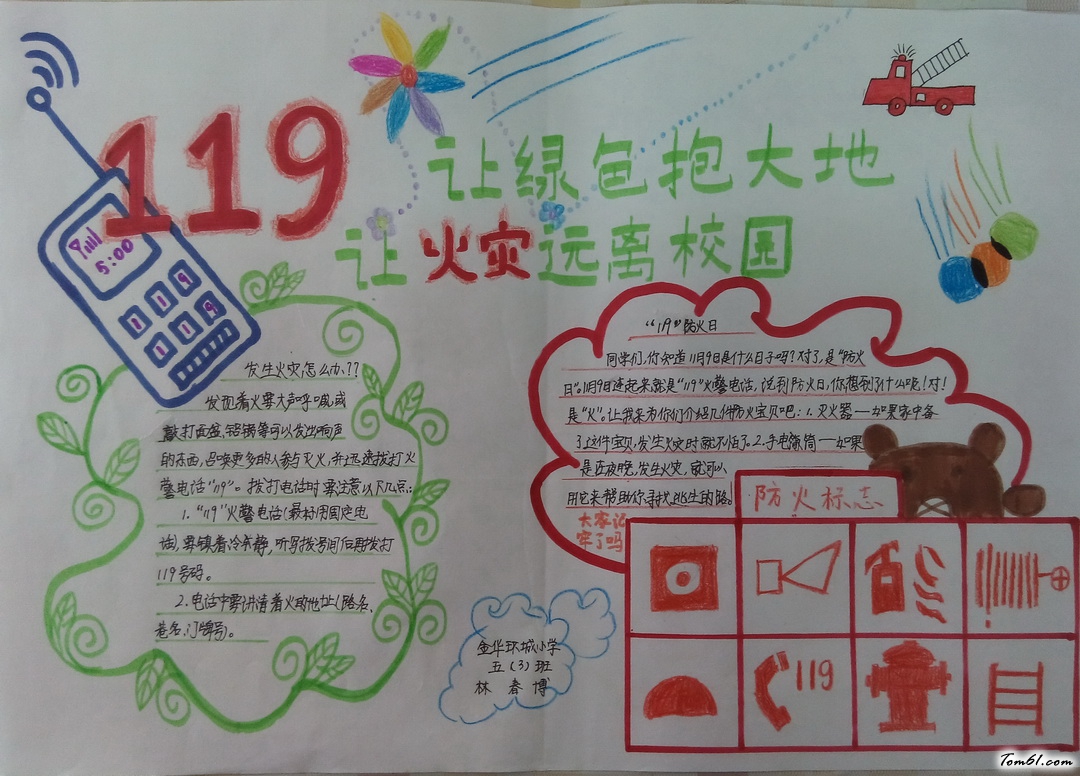 119
让绿色抱大地
让火灾远离校园
5:00
0 1 9
1 1 9
119
发生火灾怎么办??
发现着火要大声呼喊,或
敲打面盆、铝锅等可以发出响声
的东西,召唤更多的人参与灭火,并迅速拨打火
警电话“119”。拨打电话时要注意以下几点:
1.“119”火警电话(最好用固定电
话),要镇着冷静,听写拨号间后再拨打
119号码。
2.电话中要讲清着火的地址(路名、
巷名、门牌号)。
“119”防火日
同学们,你知道11月9日是什么日子吗?对了,是“防火
日”。11月9日连起来就是“119”火警电话,说到防火日,你想到了什么呢!对!
是“火”。让我来为你们介绍几件防火宝贝吧:1.灭火器——如果家中备
了这件宝贝,发生火灾时就不怕了。2.手电筒——如果
是在夜晚,发生火灾,就可以
用它来帮助你寻找逃生的路。
大家记
牢了吗
防火标志
119
金华环城小学
五(3)班
林春博
Tom61.com